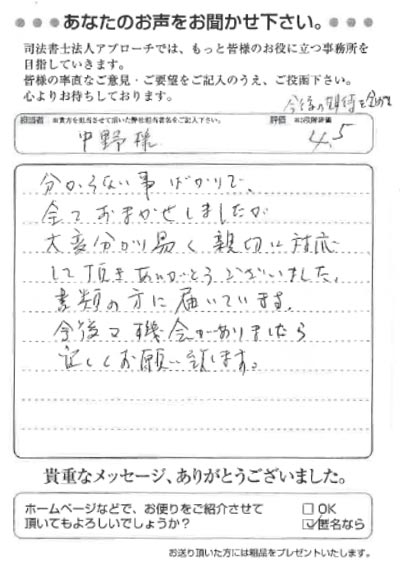 ●●●あなたのお声をお聞かせ下さい。●●●
司法書士法人アプローチでは、もっと皆様のお役に立つ事務所を
目指していきます。
皆様の率直なご意見・ご要望をご記入のうえ、ご投函下さい。
心よりお待ちしております。
今後の期待を含めて
担当者 ※貴方を担当させて頂いた弊社担当者名をご記入下さい。 評価 ※5段階評価
中野様 4.5
分からない事ばかりで、
全ておまかせしましたが
大変分かり易く親切に対応
して頂きありがとうございました。
書類の方に届いています。
今後又機会がありましたら
宜しくお願い致します。
貴重なメッセージ、ありがとうございました。
ホームページなどで、お便りをご紹介させて
頂いてもよろしいでしょうか?
□ OK
☑ 匿名なら
お送り頂いた方には粗品をプレゼントいたします。